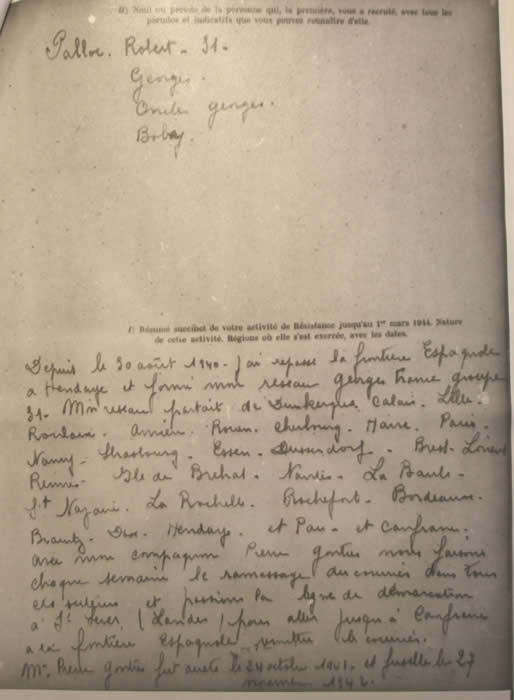 e) Nom ou pseudo de la personne qui, la première, vous a recruté, avec tous les
pseudos et indicatifs que vous pouvez connaître d'elle.
Palloc. Robert - 31 -
Georges.
Oncle georges.
Bobby.
f) Résumé succinct de votre activité de Résistance jusqu'au 1er mars 1944. Nature
de cette activité. Régions où elle s'est exercée, avec les dates.
Depuis le 30 août 1940 - j'ai repassé la frontière Espagnole
a Hendaye et formé mon reseau georges France groupe
31 - Mon reseau partait de Dunkerque, Calais. Lille.
Roubaix. Amiens. Rouen. Cherbourg. Havre. Paris.
Nancy. Strasbourg. Essen. Dusseldorf. Brest. Lorient
Rennes. Ile de Brehat. Nantes. La Baule.
St Nazaire. La Rochelle. Rochefort. Bordeaux.
Biarritz. Dax. Hendaye. et Pau. et Canfranc.
avec mon compagnon Pierre nous faisions
chaque semaine le ramassage du courrier dans tous
ces et passions la ligne de démarcation
a St Sever (Landes) pour aller jusqu'à Canfranc
a la frontière Espagnole remettre le courrier.
Mr. Pierre fut arreté le 24 octobre 1941. et fusillé le 27
novembre 1942.